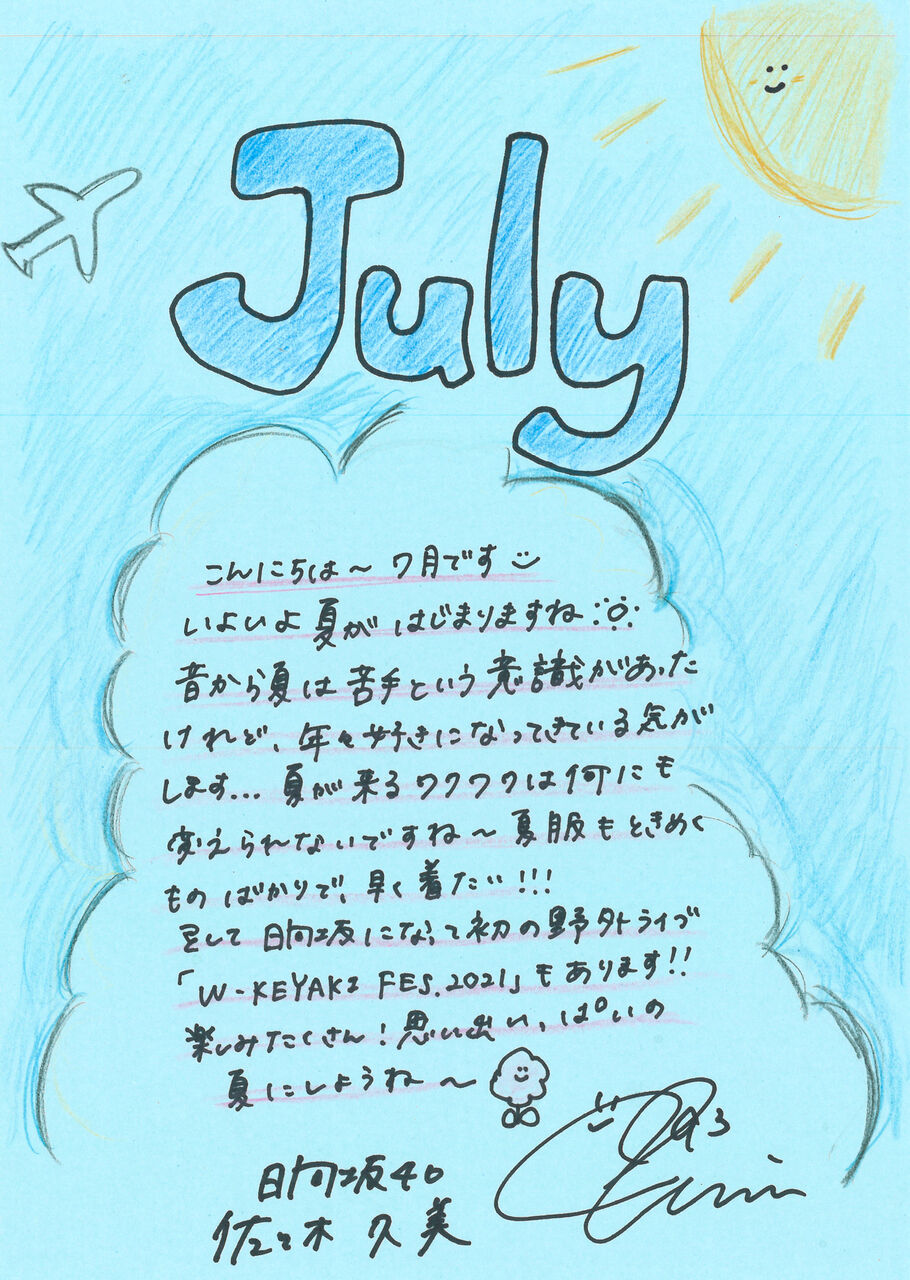 July
こんにちは〜 7月です
いよいよ夏がはじまりますね
昔から夏は苦手という意識があった
けれど、年々好きになってきている気が
します... 夏が来るワクワクは何にも
変えられないですね〜 夏服もときめく
ものばかりで、早く着たい!!!
そして日向坂になって初の野外ライブ
「W-KEYAKI FES.2021」もあります!!
楽しみたくさん!思い出いっぱいの
夏にしようね〜
日向坂46
佐々木久美